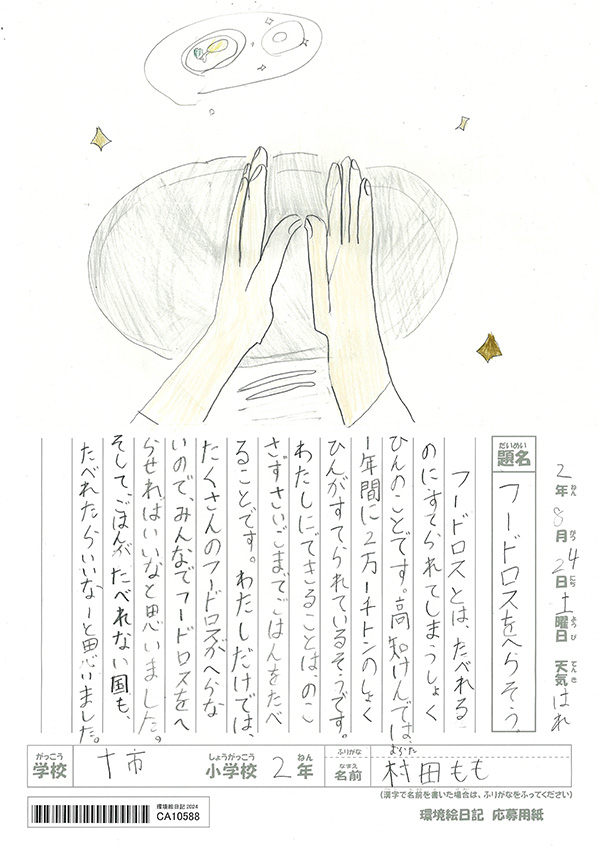 2年8月42日土曜日 天気はれ
ねん がつ にち ようび てんき
だいめい
題名 フードロスをへらそう
フードロスとは、たべれる
のにすてられてしまうしょく
ひんのことです。高知けんでは、
1年間に2万1千トンのしょく
ひんがすてられているそうです。
わたしにできることは、のこ
さずさいごまでごはんをたべ
ることです。わたしだけでは、
たくさんのフードロスがへらな
いので、みんなでフードロスをへ
らせればいいなと思いました。
そして、ごはんがたべれない国も、
たべれたらいいなーと思いました。
がっこう しょうがっこう ねん ふりがな
学校 十市 小学校 2年
なまえ
名前 村田もも
(漢字で名前を書いた場合は、ふりがなをふってください)
環境絵日記 応募用紙
環境絵日記 2024
CA10588